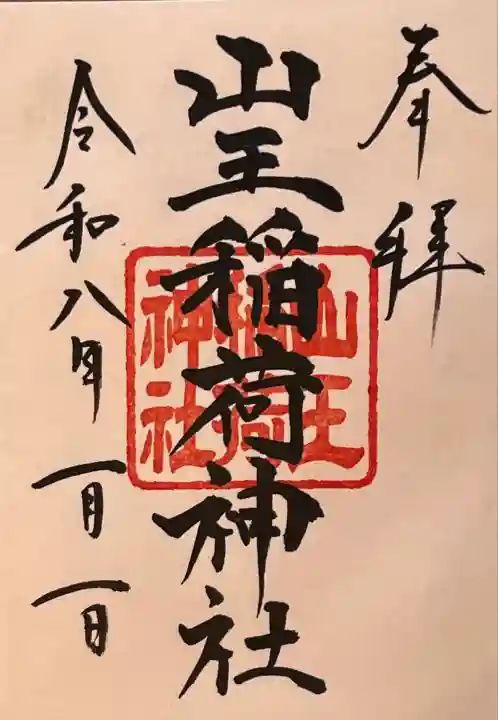 奉拝
山王稲荷神社
山王
稲荷
神社
令和八年一月一日